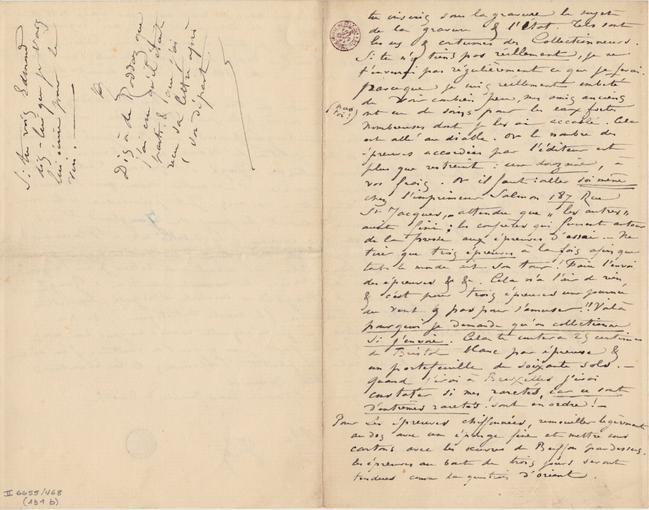 tu inscris sous la gravure le sujet
de la gravure & l'état. Tels sont
les us & coutumes des Collectionneurs.
Si tu n'y tiens pas réellement, je ne
t'enverrai pas régulièrement ce que je fais.
parceque je suis réellement embêté
de voir combien peu, mes amis anciens
ont eu de soins pour les eaux fortes
nombreuses dont je les ai accablé. Cela
est allé au diable. Or le nombre des
épreuves accordées par l'éditeur est
plus que restreint: une douzaine, à
vos frais. Or il faut: aller soi même
chez l'imprimeur Salmon 187 Rue
St Jacques, attendre que "les autres"
aient fini; les confrères qui fument autour
de la presse aux épreuves d'essai. — Ne
tirer que trois épreuves à la fois afin que
tout le monde ait son tour! Faire l'envoi
des épreuves &. &. Cela n'a l'air de rien
& c'est pour trois épreuves une journée
pas pour s'amuser!! Voilà
pourquoi je demande qu'on collectionne
si j'envoie. Cela te coutera 25 centimes
de Bristol blanc par épreuve &
un portefeuille de soixante sols. —
quand j'irai à Bruxelles j'irai
constater si mes raretés, car ce sont
d'extrêmes raretés! sont en ordre! —
Pour les épreuves chiffonnées, remouiller légèrement
au dos avec une éponge fine et mettre sous
cartons avec les œuvres de Buffon par dessus.
les épreuves au bout de trois jours seront
tendues comme d'orient.
Si tu vois Edmond
dis-lui que je vais
lui écrire pour le
Dis à de Roddaz que
j'ai cru qu'il était
parti & que j'ai
reçu sa lettre après
son départ
II 6655/468
(191 b)